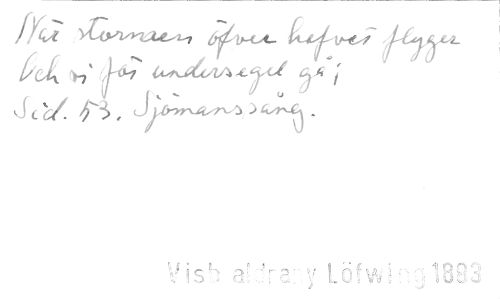 När stormen öfver hafvet flygger
Och vi fås undersegel gå;
Sid. 53. Sjömanssång.
Visb aldrany Löfwing 1883